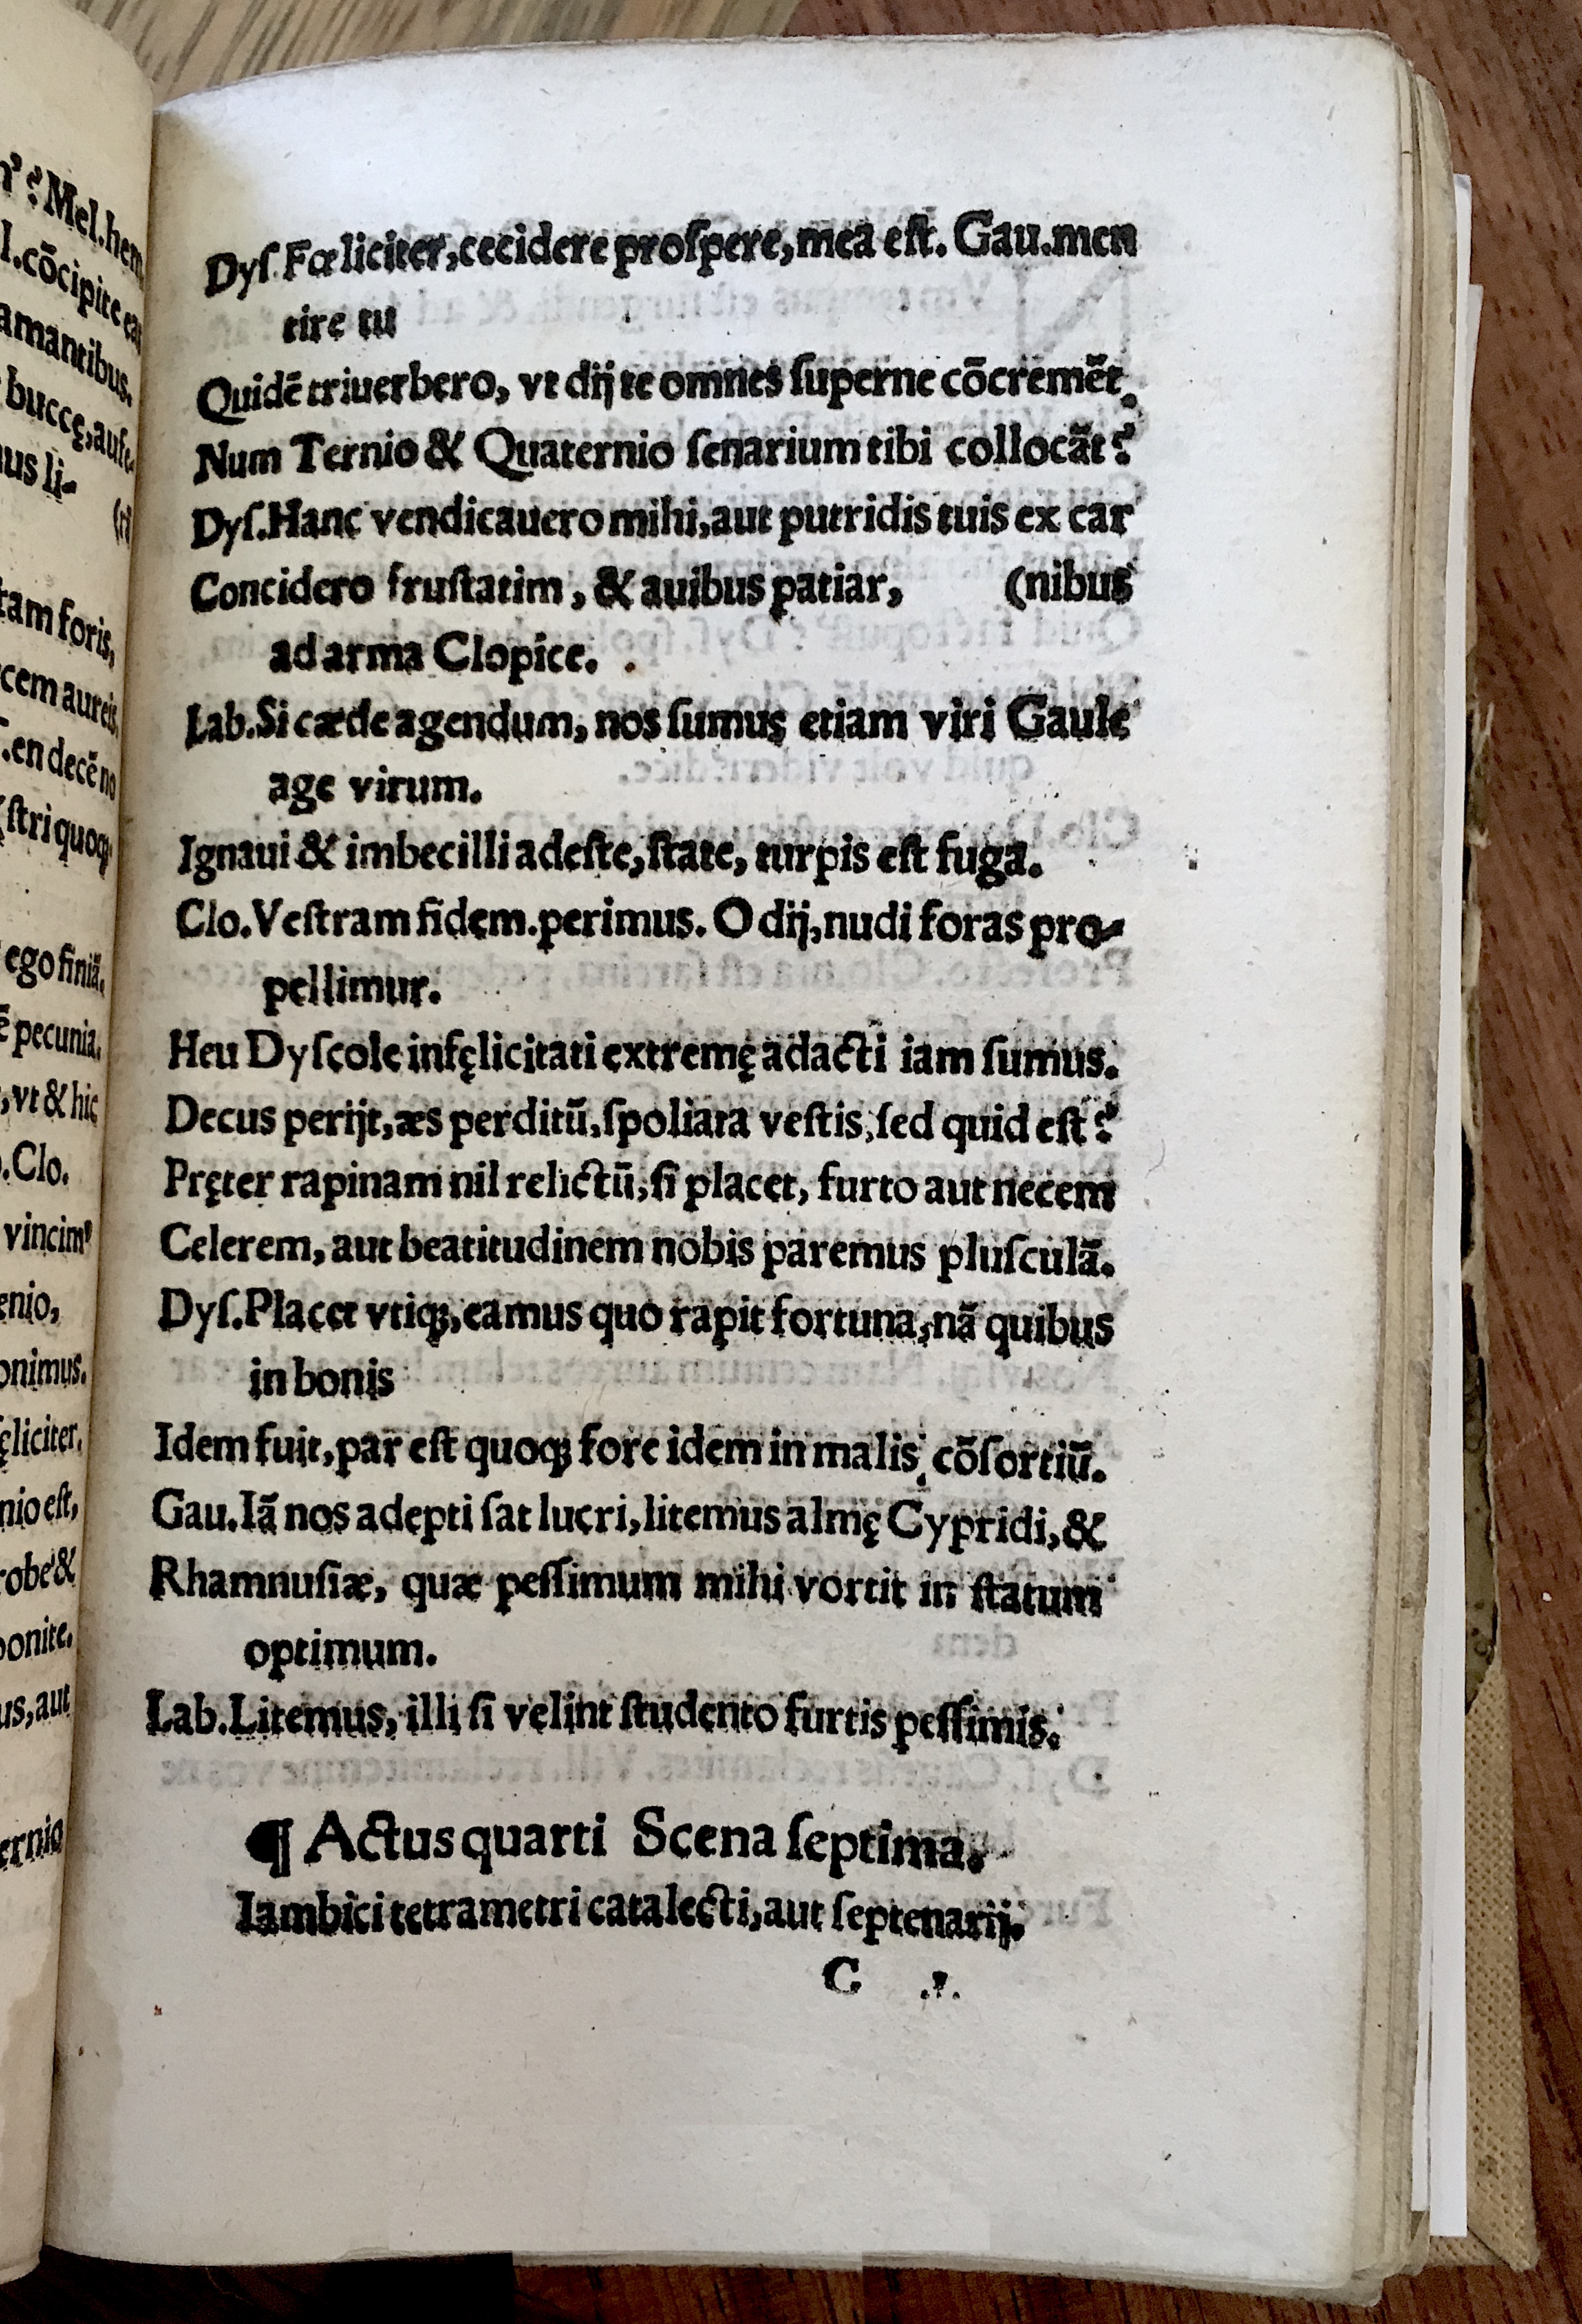 n’ ? Mel. hem
l. cōcipite eas
amantibus.
bucce̜, aufe-
us li-
(ri
tam foris,
cem aureis,
. en decē no
(ſtri quoq;
ego finiā.
ē pecunia.
, vt & hic
. Clo.
vincim’
enio,
onimus.
e̜liciter.
nio eſt,
robe &
ponite.
us, aut
ernio
Dyſ. Fœliciter, cecidere proſpere, mea eſt. Gau. men
tire tu
Quidē triuerbero, vt dij te omnes ſuperne cōcremēt.
Num Ternio & Quaternio ſenarium tibi collocāt ?
Dyſ. Hanc vendicauero mihi, aut putridis tuis ex car
Concidero fruſtatim, & auibus patiar, (nibus
ad arma Clopice.
Lab. Si cæde agendum, nos ſumus etiam viri Gaule
age virum.
Ignaui & imbecilli adeſte, ſtate, turpis eſt fuga.
Clo. Veſtram fidem. perimus. O dij, nudi foras pro-
pellimur.
Heu Dyſcole infe̜licitati extreme̜ adacti iam ſumus.
Decus perijt, æs perditū, ſpoliata veſtis, ſed quid eſt ?
Pre̜ter rapinam nil relictū, ſi placet, furto aut necem
Celerem, aut beatitudinem nobis paremus pluſculā.
Dyſ. Placet vtiq;, eamus quo rapit fortuna, nā quibus
in bonis
Idem fuit, par eſt quoq; fore idem in malis cōſortiū.
Gau. Iā nos adepti ſat lucri, litemus alme̜ Cypridi, &
Rhamnuſiæ, quæ peſſimum mihi vortit in ſtatum
optimum.
Lab. Litemus, illi ſi velint ſtudento furtis peſſimis.
¶ Actus quarti Scena ſeptima.
Iambici tetrametri catalecti, aut ſeptenarij.
C